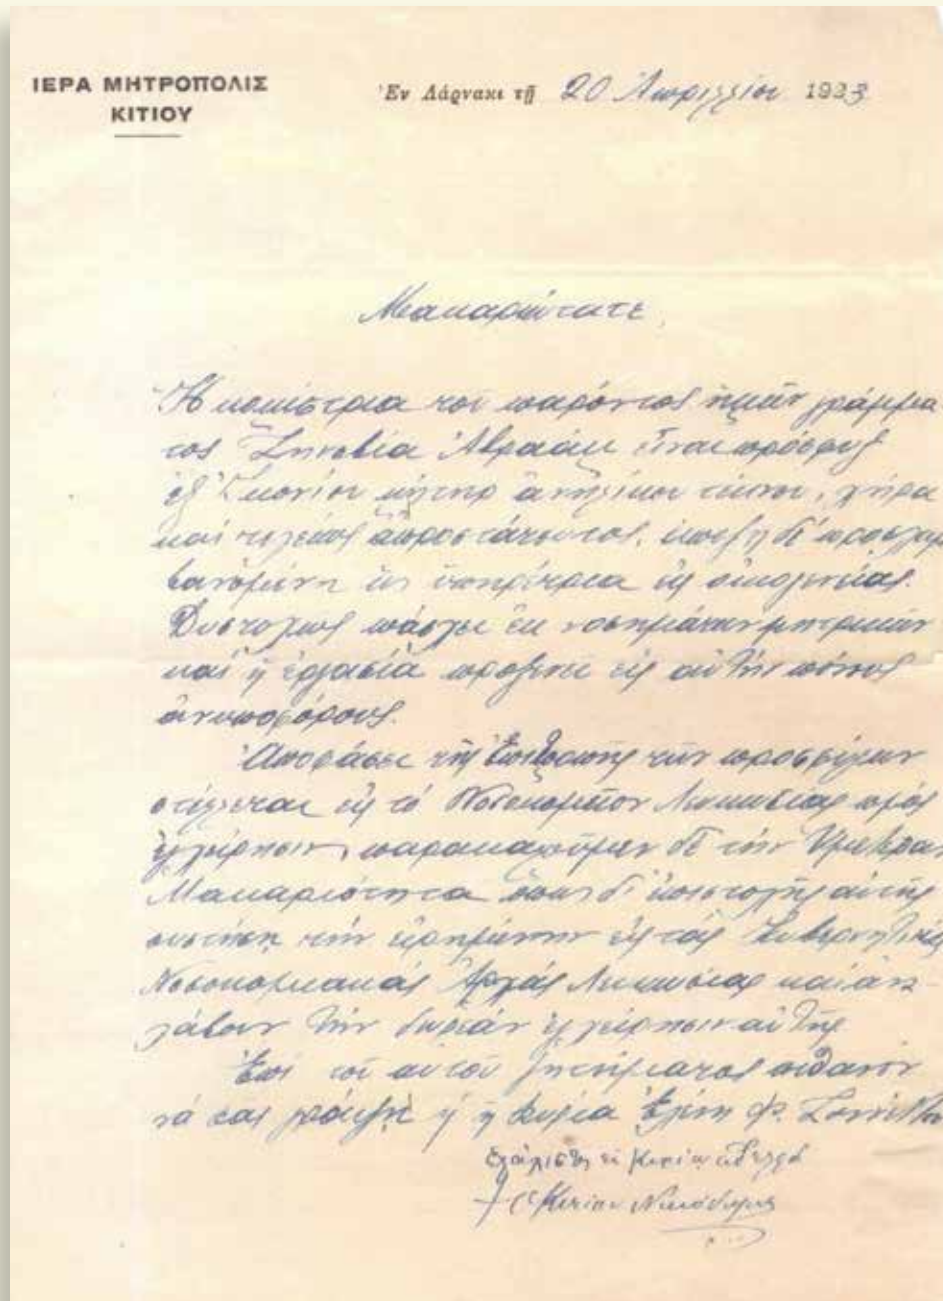 ΙΕΡΑ ΜΗΤΡΟΠΟΛΙΣ
ΚΙΤΙΟΥ
Ἐν Λάρνακι τῇ 20 Ἀπριλλίου 1923
Μακαριώτατε,
Ἡ κομίστρια τοῦ παρόντος ἡμῶν γράμμα
τος Ζηνοβία Ἀβραὰμ εἶναι πρόσφυξ
ἐξ Ἰκονίου μήτηρ ἀνηλίκου τέκνου, χήρα
καὶ τελείως ἀπροστάτευτος, δὲ προσλαμ
βανομένη ὡς ὑπηρέτρια εἰς οἰκογενείας.
Δυστυχῶς πάσχει ἐκ νοσημάτων μητρικῶν
καὶ ἡ ἐργασία προξενεῖ εἰς αὐτὴν πόνους
ἀνυποφόρους.
Ἀποφάσει τῆς Ἐπιτροπῆς τῶν προσφύγων
στέλλεται εἰς τὸ Νοσοκομεῖον Λευκωσίας πρὸς
ἐγχείρησιν, παρακαλοῦμεν δὲ τὴν Ὑμετέραν
Μακαριότητα ὅπως δι' ἐπιστολῆς αὐτῆς
συστήσῃ τὴν εἰρημένην εἰς τὰς Κυβερνητικὰς
Νοσοκομειακὰς Ἀρχὰς Λευκωσίας καὶ ἀνα
λάβουν τὴν δωρεὰν ἐγχείρησιν αὐτῆς
Ἐπὶ τοῦ αὐτοῦ ζητήματος πιθανὸν
νὰ σας γράψῃ ἡ Κυρία Ἑλένη Φ.
Ἐλάχιστος ἐν Κυρίῳ ἀδελφὸς
† ὁ Κιτίου Νικόδημος